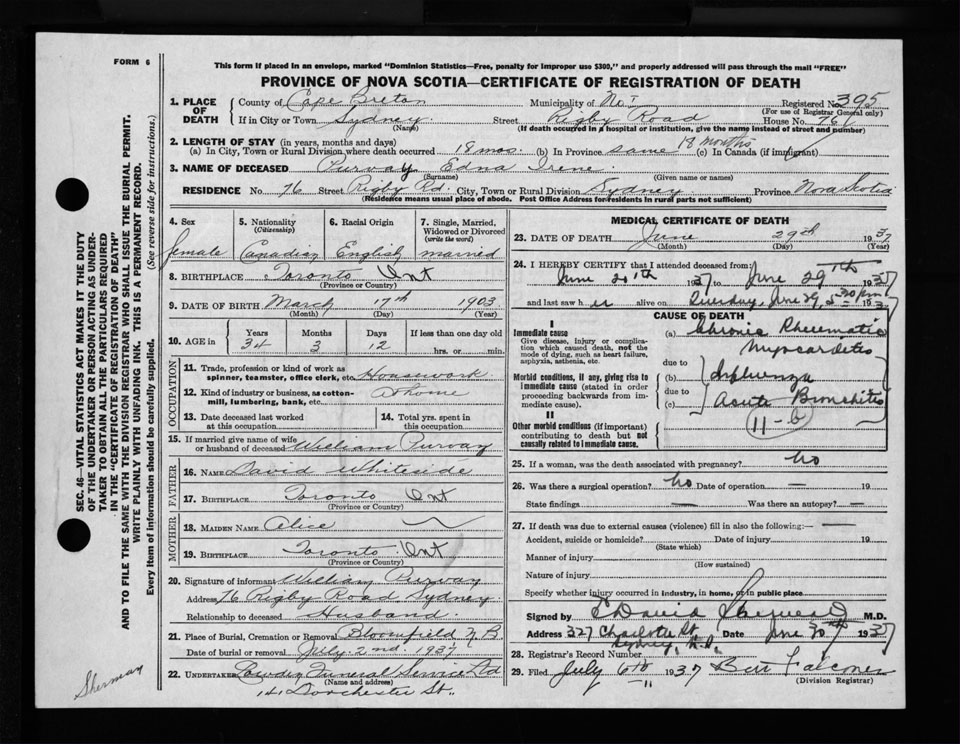 FORM 6
This form if placed in an envelope, marked "Dominion Statistics—Free, penalty for improper use $300," and properly addressed will pass through the mail "FREE"
PROVINCE OF NOVA SCOTIA—CERTIFICATE OF REGISTRATION OF DEATH
1. PLACE OF DEATH County of Cape Breton Municipality of No. 1 Registered No. 395
(For use of Registrar General only)
If in City or Town Sydney Street Rigby Road House No. 76
(Name) (If death occurred in a hospital or institution, give the name instead of street and number)
2. LENGTH OF STAY (in years, months and days)
(a) In City, Town or Rural Division where death occurred 18 mos. (b) In Province same 18 months (c) In Canada (if immigrant)
3. NAME OF DECEASED Purvay Edna Irene
(Surname) (Given name or names)
RESIDENCE No. 76 Street Rigby Rd. City, Town or Rural Division Sydney Province Nova Scotia
(Residence means usual place of abode. Post Office Address for residents in rural parts not sufficient)
4. Sex 5. Nationality (Citizenship) 6. Racial Origin 7. Single, Married, Widowed or Divorced (write the word)
female Canadian English married
8. BIRTHPLACE Toronto Ont
(Province or Country)
9. DATE OF BIRTH March 17th 1903
(Month) (Day) (Year)
10. AGE in Years Months Days If less than one day old
34 3 12 hrs. or min.
OCCUPATION
11. Trade, profession or kind of work as spinner, teamster, office clerk, etc. Housework
12. Kind of industry or business, as cotton-mill, lumbering, bank, etc. At home
13. Date deceased last worked at this occupation 14. Total yrs. spent in this occupation
15. If married give name of wife or husband of deceased William Purvay
FATHER
16. NAME David Whiteside
17. BIRTHPLACE Toronto Ont
(Province or Country)
MOTHER
18. MAIDEN NAME Alice
19. BIRTHPLACE Toronto Ont
(Province or Country)
20. Signature of informant William Purvay
Address 76 Rigby Road Sydney
Relationship to deceased Husband
21. Place of Burial, Cremation or Removal Bloomfield N B
Date of burial or removal July 2nd 1937
22. UNDERTAKER Funeral Service Ltd
(Name and address)
141 Dorchester St.
MEDICAL CERTIFICATE OF DEATH
23. DATE OF DEATH June 29th 1937
(Month) (Day) (Year)
24. I HEREBY CERTIFY that I attended deceased from:
June 20th 1937 to June 29th 1937
and last saw her alive on Tuesday, June 29, 5:30 pm 1937
CAUSE OF DEATH
I
Immediate cause
Give disease, injury or complication which caused death, not the mode of dying, such as heart failure, asphyxia, asthenia, etc.
(a) Chronic Rheumatic Myocarditis
due to
Morbid conditions, if any, giving rise to immediate cause (stated in order proceeding backwards from immediate cause).
(b) Influenza
due to
(c) Acute Bronchitis
II
11-b
Other morbid conditions (if important) contributing to death but not causally related to immediate cause.
25. If a woman, was the death associated with pregnancy? no
26. Was there a surgical operation? no Date of operation — 19
State findings Was there an autopsy? —
27. If death was due to external causes (violence) fill in also the following:—
Accident, suicide or homicide? Date of injury 19
(State which)
Manner of injury
(How sustained)
Nature of injury
Specify whether injury occurred in industry, in home, or in public place
Signed by M.D.
Address 327 Charlotte St. Sydney, N.S. Date June 30th 1937
28. Registrar's Record Number
29. Filed July 6th 1937 Ben Falconer
(Division Registrar)
SEC. 46—VITAL STATISTICS ACT MAKES IT THE DUTY
OF THE UNDERTAKER OR PERSON ACTING AS UNDER-
TAKER TO OBTAIN ALL THE PARTICULARS REQUIRED
IN THE "CERTIFICATE OF REGISTRATION OF DEATH"
AND TO FILE THE SAME WITH THE DIVISION REGISTRAR WHO SHALL ISSUE THE BURIAL PERMIT.
WRITE PLAINLY WITH UNFADING INK. THIS IS A PERMANENT RECORD.
Every item of information should be carefully supplied. (See reverse side for instructions.)
Sherman